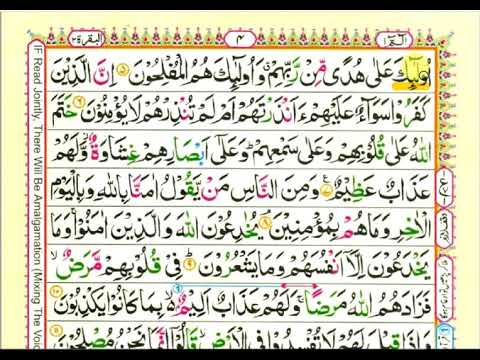 البقرة ٢
٤
الٓمّٓ ١
اُولٰٓئِكَ عَلٰى هُدًى مِّنْ رَّبِّهِمْ ۗ وَاُولٰٓئِكَ هُمُ الْمُفْلِحُوْنَ ۝٥ اِنَّ الَّذِيْنَ
كَفَرُوْا سَوَآءٌ عَلَيْهِمْ ءَاَنْذَرْتَهُمْ اَمْ لَمْ تُنْذِرْهُمْ لَا يُؤْمِنُوْنَ ۝٦ خَتَمَ
اللّٰهُ عَلٰى قُلُوْبِهِمْ وَعَلٰى سَمْعِهِمْ ؕ وَعَلٰٓى اَبْصَارِهِمْ غِشَاوَةٌ ؗ وَّلَهُمْ
عَذَابٌ عَظِيْمٌ ۝٧ وَمِنَ النَّاسِ مَنْ يَّقُوْلُ اٰمَنَّا بِاللّٰهِ وَبِالْيَوْمِ
الْاٰخِرِ وَمَا هُمْ بِمُؤْمِنِيْنَ ۝٨ يُخٰدِعُوْنَ اللّٰهَ وَالَّذِيْنَ اٰمَنُوْا ۚ وَمَا
يَخْدَعُوْنَ اِلَّاۤ اَنْفُسَهُمْ وَمَا يَشْعُرُوْنَ ۝٩ فِيْ قُلُوْبِهِمْ مَّرَضٌ ۙ
فَزَادَهُمُ اللّٰهُ مَرَضًا ۚ وَلَهُمْ عَذَابٌ اَلِيْمٌ ۢ ۙ بِمَا كَانُوْا يَكْذِبُوْنَ ۝١٠
وَاِذَا قِيْلَ لَهُمْ لَا تُفْسِدُوْا فِي الْاَرْضِ ۙ قَالُوْٓا اِنَّمَا نَحْنُ مُصْلِحُوْنَ ۝١١
IF Read Jointly, There Will Be Amalgamation (Mixing The Voic